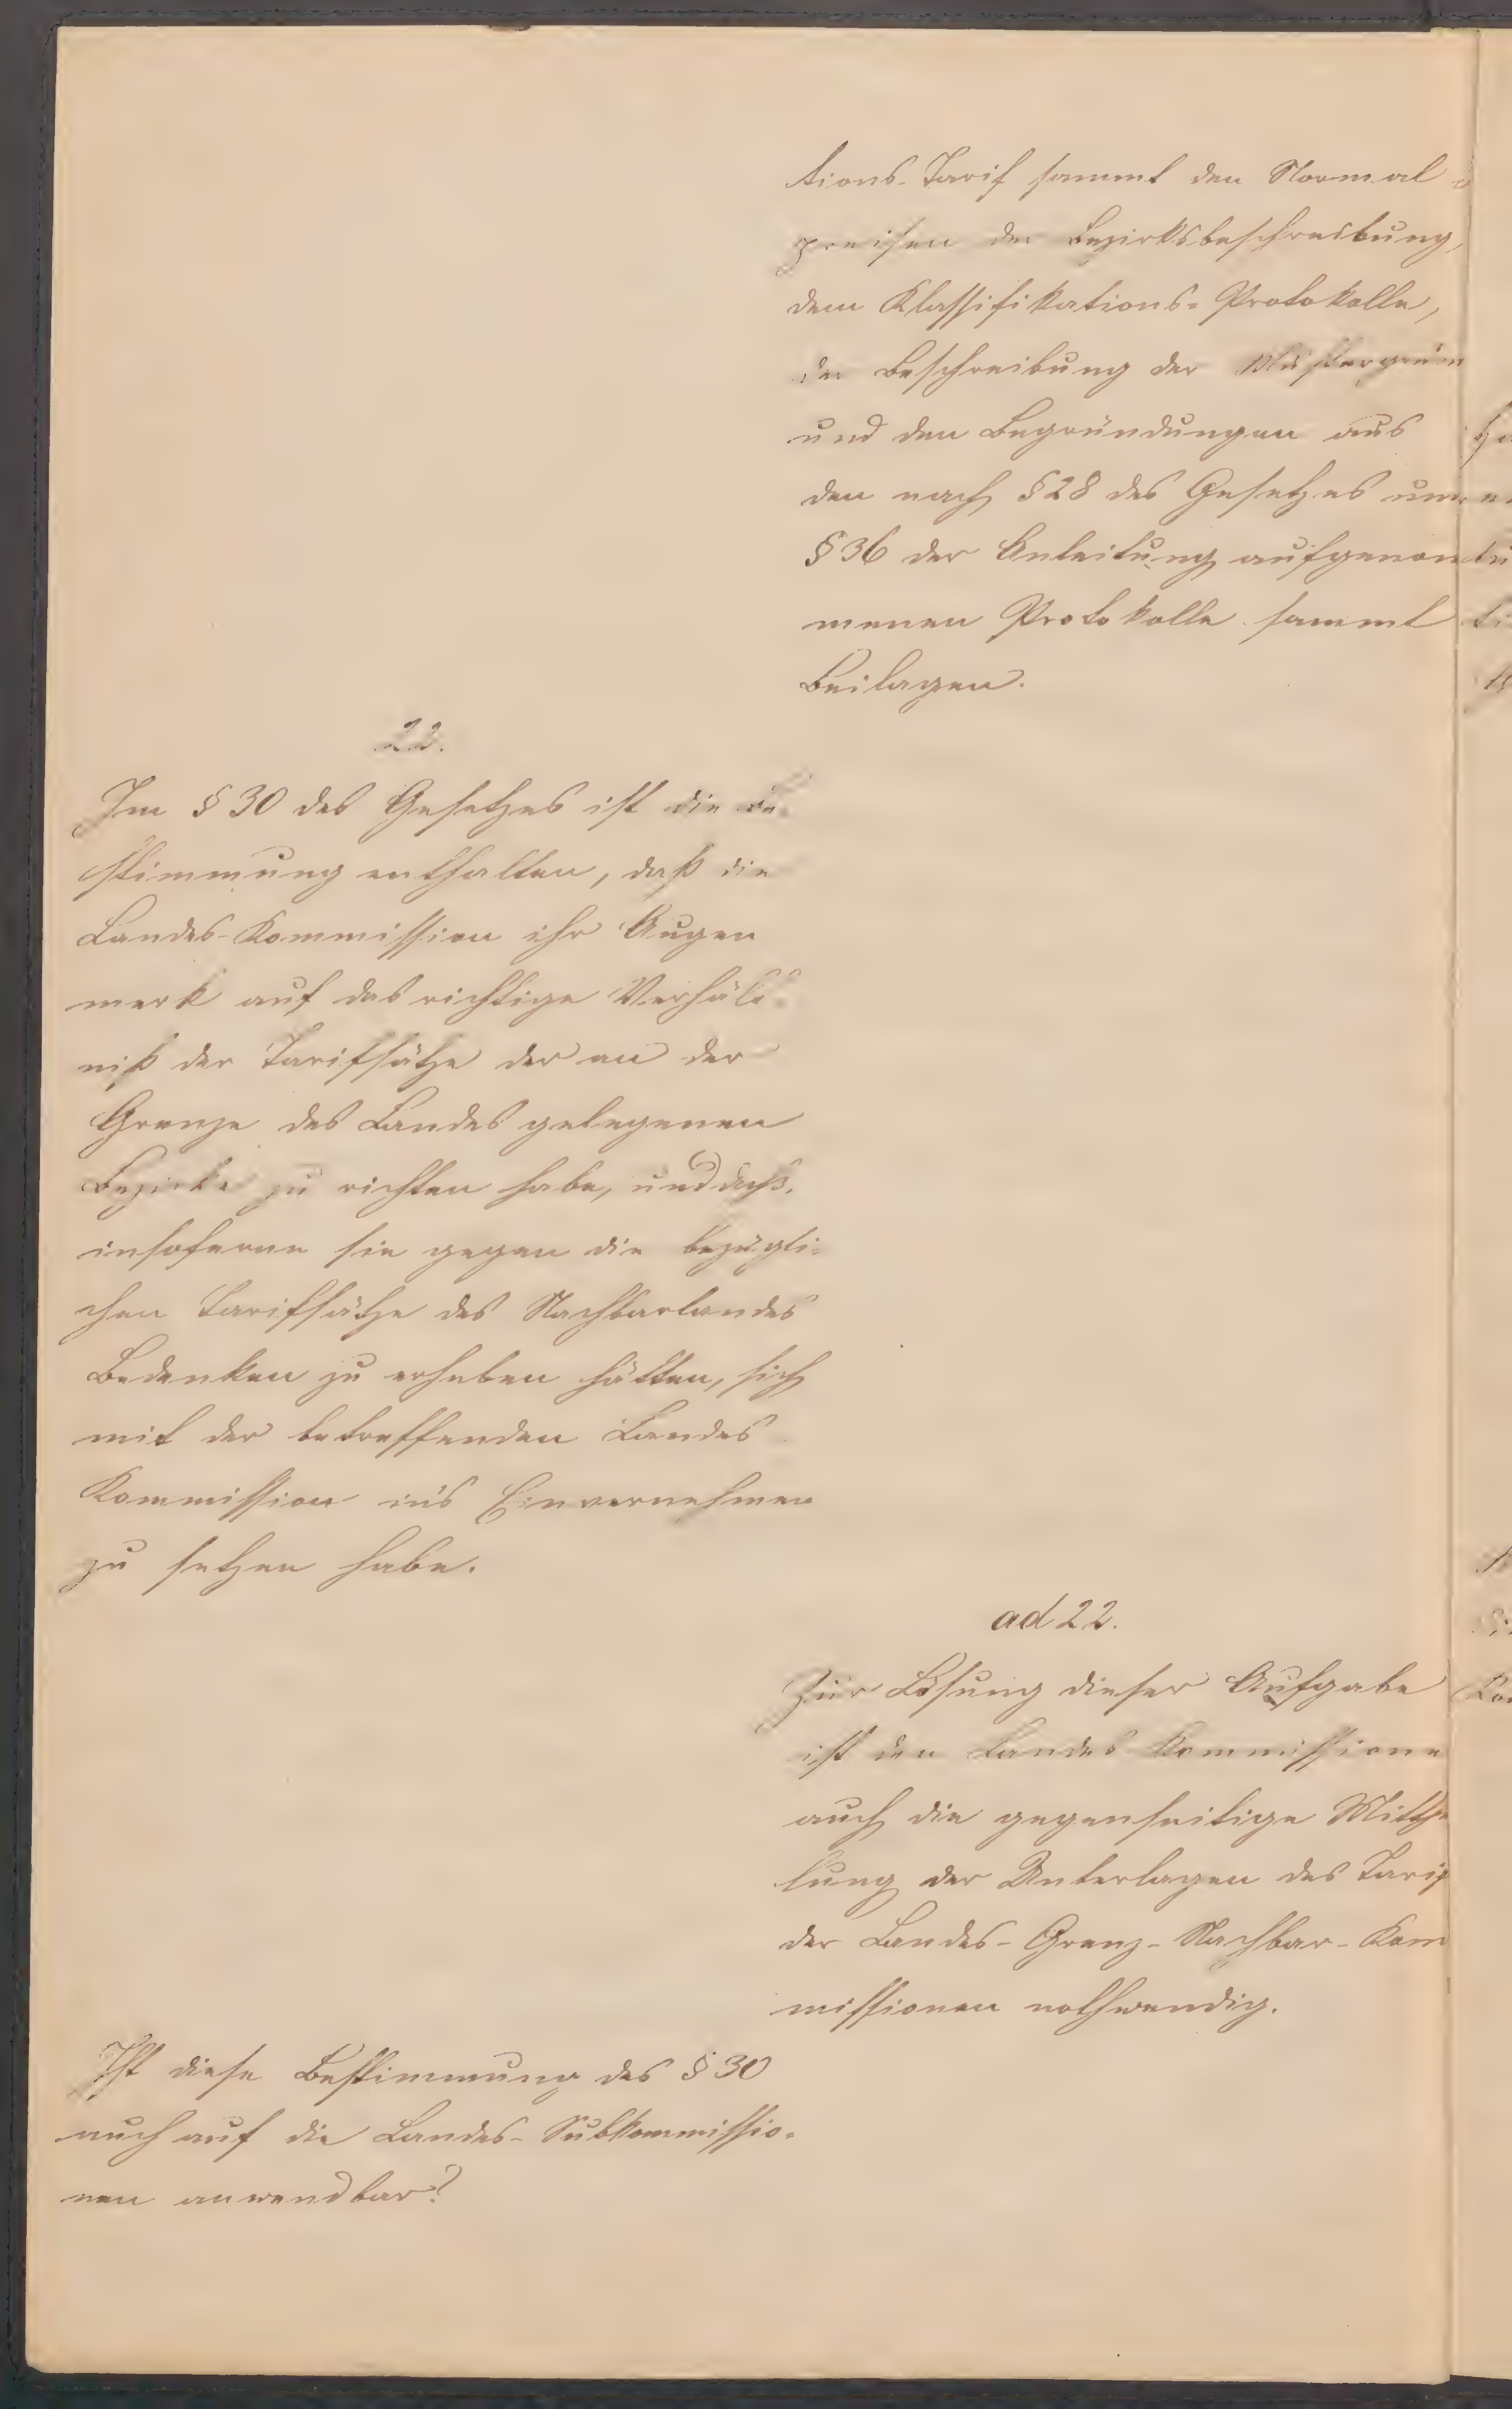 tions-Tarif sammt den Normal-
preisen der Bezirksbeschreibung,
dem Klassifikations-Protokolle,
der Beschreibung der Mustergrün
und den Begründungen aus
den nach §28 des Gesetzes und
§36 der Anleitung aufgenom
menen Protokolle sammt
Beilagen.
22.
Im §30 des Gesetzes ist die Be-
stimmung enthalten, daß die
Landes-Kommission ihr Augen
merk auf das richtige Verhält-
niß der Tarifsätze der an der
Grenze des Landes gelegenen
Bezirke zu richten habe, und daß,
insoferne sie gegen die bezügli-
chen Tarifsätze des Nachbarlandes
Bedenken zu erheben hätten, sich
mit der betreffenden Landes
Kommission in's Einvernehmen
zu setzen habe.
ad 22.
Zur Lösung dieser Aufgabe
ist den Landes-Kommissione
auch die gegenseitige Mitthe
lung der Unterlagen des Tarif
der Landes-Grenz-Nachbar-Kom
missionen nothwendig.
Ist diese Bestimmung des §30
auch auf die Landes-Subkommissio-
nen anwendbar?